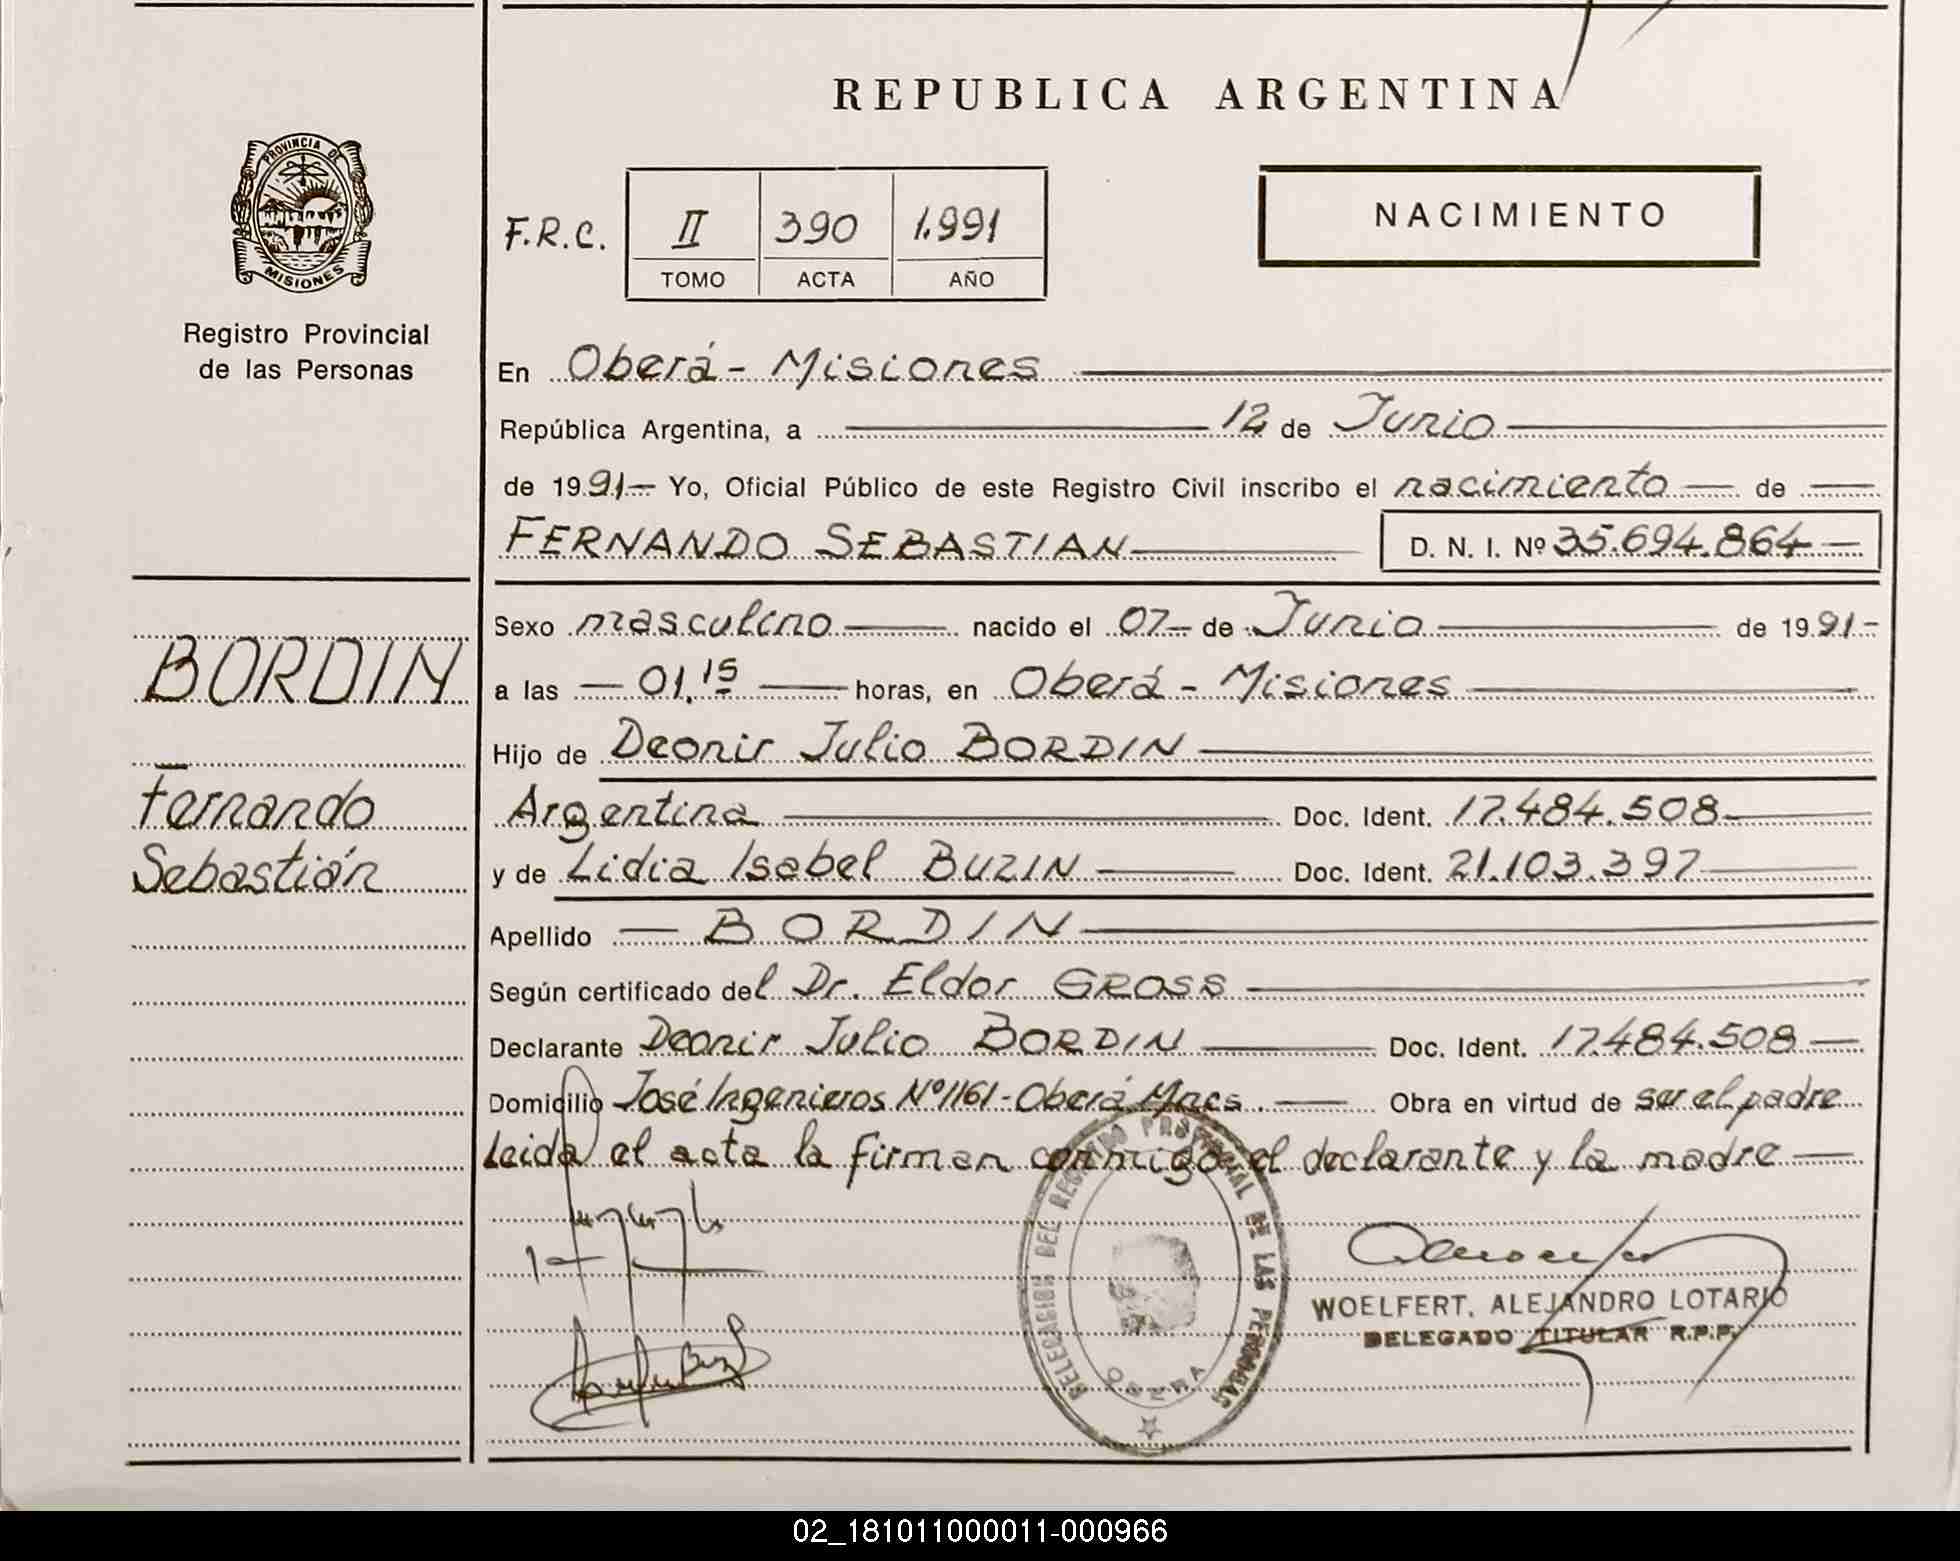 REPUBLICA ARGENTINA
PROVINCIA DE
MISIONES
Registro Provincial
de las Personas
F.R.C. II 390 1.991
TOMO ACTA AÑO
NACIMIENTO
En Oberá - Misiones
República Argentina, a 12 de Junio
de 1991 - Yo, Oficial Público de este Registro Civil inscribo el nacimiento de
FERNANDO SEBASTIAN D. N. I. Nº 35.694.864
BORDIN
Fernando
Sebastián
Sexo masculino nacido el 07 de Junio de 1991
a las 01.15 horas, en Oberá - Misiones
Hijo de Deonir Julio BORDIN
Argentina Doc. Ident. 17.484.508
y de Lidia Isabel BUZIN Doc. Ident. 21.103.397
Apellido BORDIN
Según certificado del Dr. Eldor GROSS
Declarante Deonir Julio BORDIN Doc. Ident. 17.484.508
Domicilio José Ingenieros Nº 1161 - Oberá Mnes. Obra en virtud de ser el padre
Leida el acta la firman conmigo el declarante y la madre
DELEGACION DEL REGISTRO PROVINCIAL DE LAS PERSONAS
OBERA
WOELFERT, ALEJANDRO LOTARIO
DELEGADO TITULAR R.P.P.
02_181011000011-000966